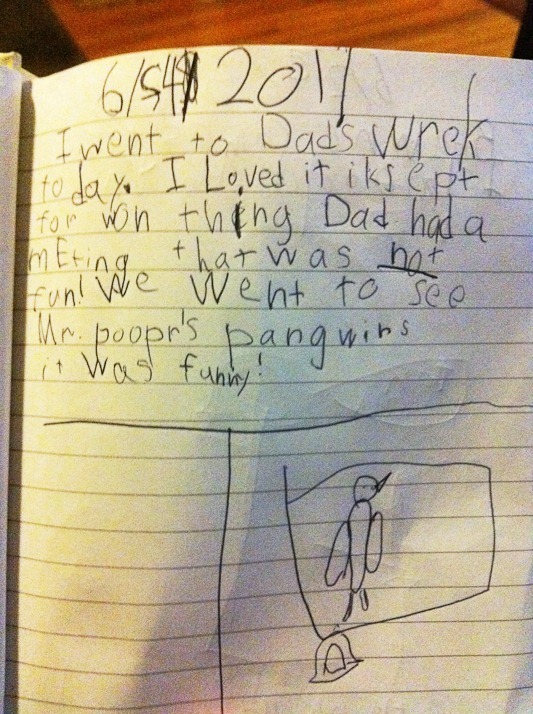 2011
I went to Dad's Wrek
to day. I Loved it iksept
for won thing Dad had a
mEting that was not
fun! We Went to see
Mr. poopr's pangwins
it Was funny!